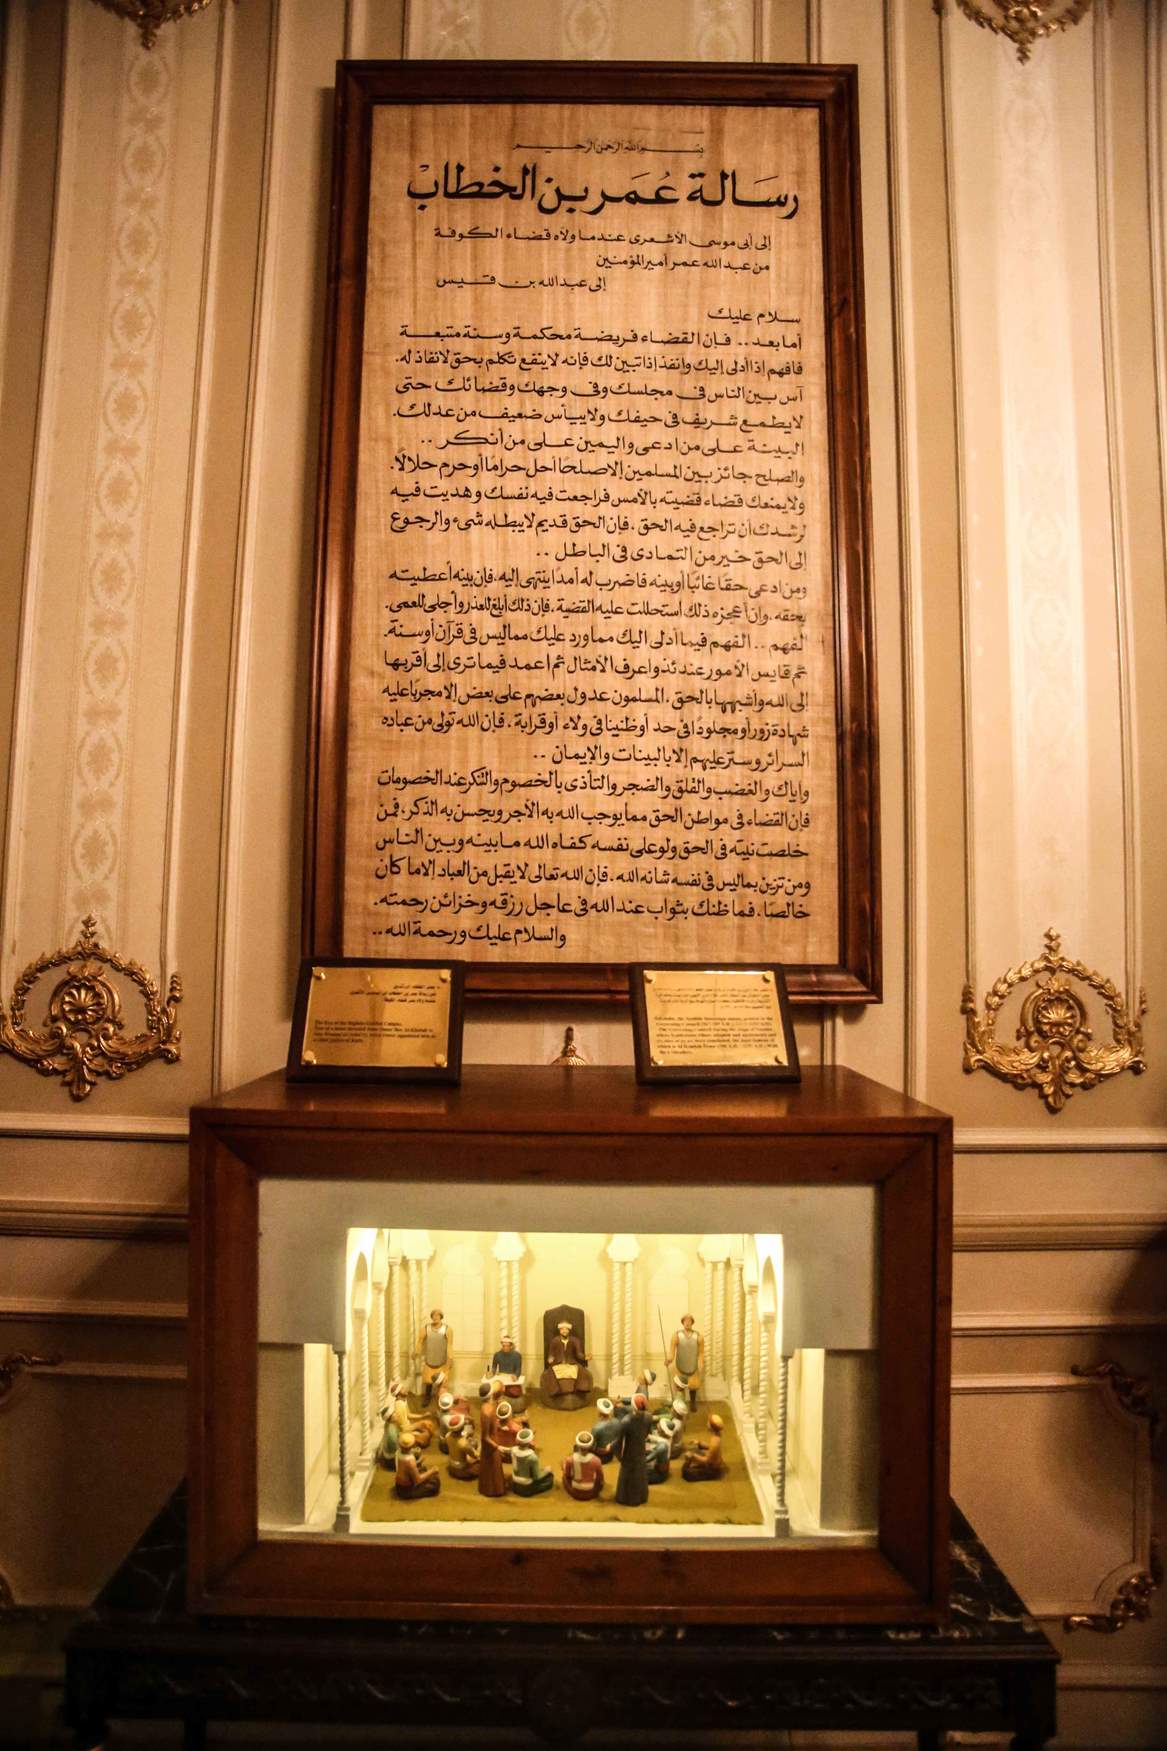 بسم الله الرحمن الرحيم
رسالة عمر بن الخطاب
إلى أبى موسى الأشعرى عندما ولاه قضاء الكوفة
من عبد الله عمر أمير المؤمنين
إلى عبد الله بن قيس
سلام عليك
أما بعد .. فإن القضاء فريضة محكمة وسنة متبعة
فافهم إذا أدلى إليك وانفذ إذا تبين لك فإنه لا ينفع تكلم بحق لا نفاذ له.
آس بين الناس فى مجلسك وفى وجهك وقضائك حتى
لا يطمع شريف فى حيفك ولا ييأس ضعيف من عدلك.
البينة على من ادعى واليمين على من أنكر ..
والصلح جائز بين المسلمين إلا صلحًا أحل حرامًا أو حرم حلالًا.
ولا يمنعك قضاء قضيته بالأمس فراجعت فيه نفسك وهديت فيه
لرشدك أن تراجع فيه الحق ، فإن الحق قديم لا يبطله شىء والرجوع
إلى الحق خير من التمادى فى الباطل ..
ومن ادعى حقًا غائبًا أو بينه فاضرب له أمدًا ينتهى إليه، فإن بينه أعطيته
بحقه ، وإن أعجزه ذلك استحللت عليه القضية ، فإن ذلك أبلغ للعذر وأجلى للعمى.
الفهم .. الفهم فيما أدلى اليك مما ورد عليك مما ليس فى قرآن أو سنة.
ثم قايس الأمور عندئذ واعرف الأمثال ثم اعمد فيما ترى إلى أقربها
إلى الله وأشبهها بالحق ، المسلمون عدول بعضهم على بعض إلا مجربًا عليه
شهادة زور أو مجلودًا فى حد أو ظنينا فى ولاء أو قرابة ، فإن الله تولى من عباده
السرائر وستر عليهم إلا بالبينات والإيمان ..
وإياك والغضب والقلق والضجر والتأذى بالخصوم والتنكر عند الخصومات
فإن القضاء فى مواطن الحق مما يوجب الله به الأجر ويحسن به الذكر ، فمن
خلصت نيته فى الحق ولو على نفسه كفاه الله ما بينه وبين الناس
ومن تزين بما ليس فى نفسه شانه الله ، فإن الله تعالى لا يقبل من العباد إلا ما كان
خالصًا ، فما ظنك بثواب عند الله فى عاجل رزقه وخزائن رحمته.
والسلام عليك ورحمة الله ..